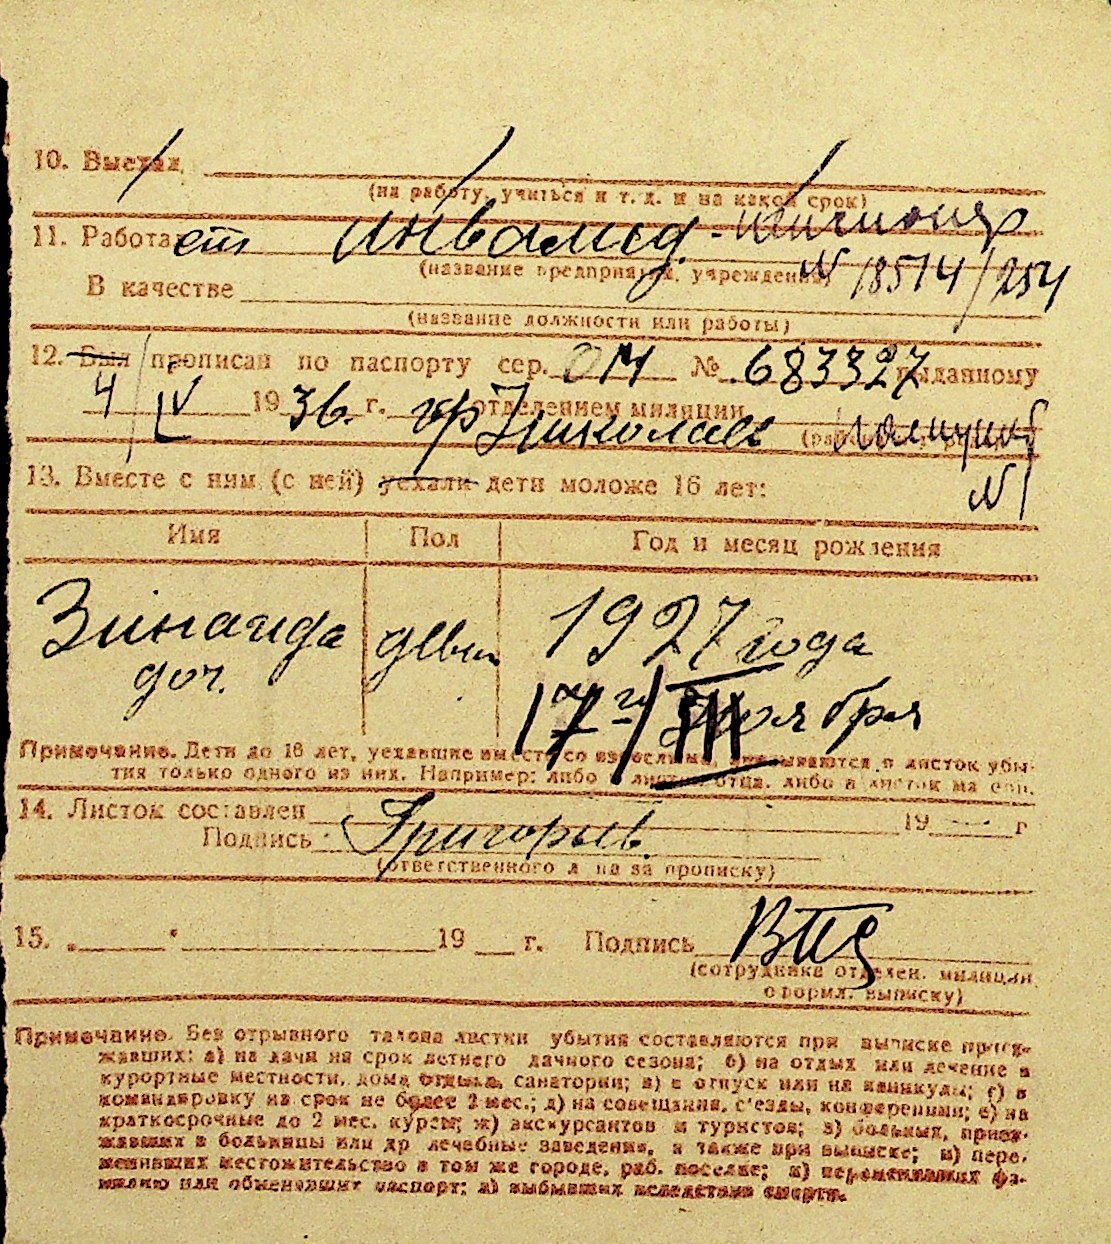 10. Выехал
(на работу, учиться и т. д. и на какой срок)
11. Работает инвалид - пенсионер
(название предприятия, учреждения) N 18514/254
В качестве
(название должности или работы)
12. Был прописан по паспорту сер. ОМ № 683327 выданному
4/IV 1936 г. гор Николаев отделением милиции
N 1
13. Вместе с ним (с ней) уехали дети моложе 16 лет:
Имя Пол Год и месяц рождения
Зинаида дев. 1927 года
доч. 17го ноября
III
Примечание. Дети до 16 лет, уехавшие вместе со взрослыми, указываются в листок убы-
тия только одного из них. Например: либо в листок отца, либо в листок матери.
14. Листок составлен 19 г
Подпись Григорьев
(ответственного лица за прописку)
15. „ “ 19 г. Подпись
(сотрудника отделен. милиции
оформл. выписку)
Примечание. Без отрывного талона листки убытия составляются при выписке приез-
жавших: а) на дачи на срок летнего дачного сезона; б) на отдых или лечение в
курортные местности, дома отдыха, санатории; в) в отпуск или на каникулы; г) в
командировку на срок не более 2 мес.; д) на совещания, с'езды, конференции; е) на
краткосрочные до 2 мес. курсы; ж) экскурсантов и туристов; з) больных, приез-
жавших в больницы или др лечебные заведения, а также при выписке; и) пере-
менивших местожительство в том же городе, раб. поселке; к) переменивших фа-
милию или обменявших паспорт; л) выбывших вследствие смерти.